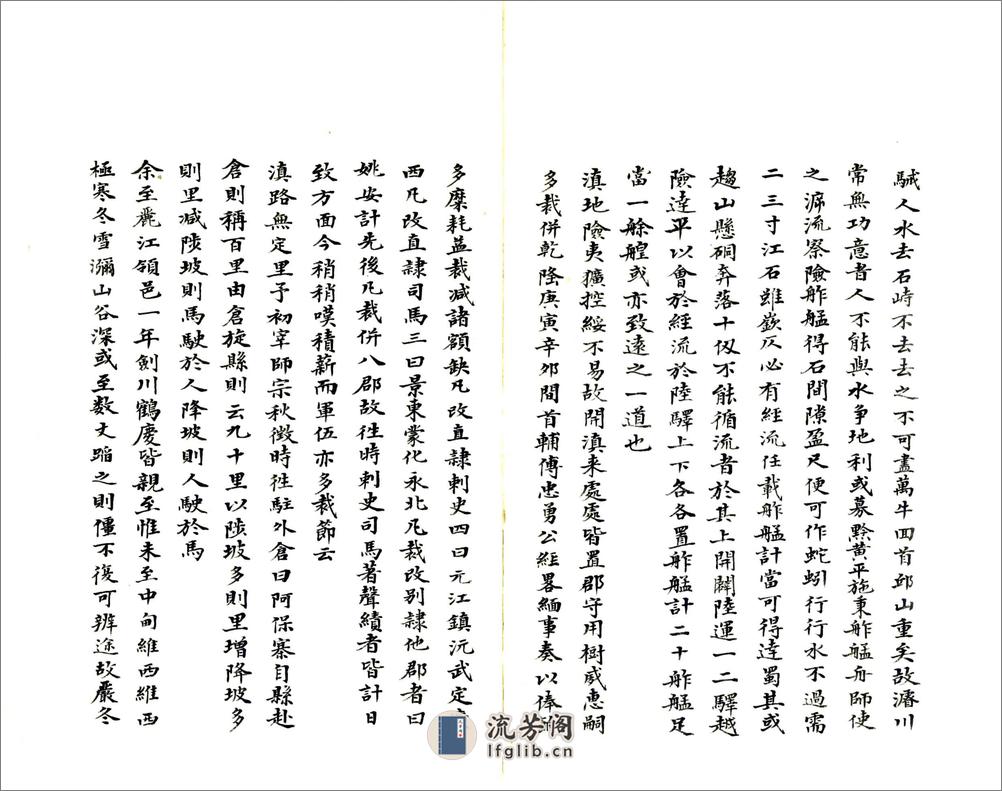 駥人水去石峙不去去之不可盡萬牛回首邱山重矣故濬川
常無功意者人不能與水爭地利或募黔黄平施秉舴艋舟師使
之溯流察險舴艋得石間隙盈尺便可作蛇蚓行行水不過需
二三寸江石雖嶔仄必有經流任載舴艋計當可得逹蜀其或
趨山懸硐奔落十仭不能循流者於其上開闢陸運一二驛越
險逹平以會於經流於陸驛上下各各置舴艋計二十舴艋足
當一艅艎或亦致遠之一道也
滇地險夷獷控綏不易故開滇来處處皆置郡守用樹威惠嗣
多裁併乾隆庚寅辛夘間首輔傅忠勇公經畧緬事奏以俸
多糜耗益裁減諸額缺凡改直隷刺史四曰元江鎮沅武定
西凡改直隷司馬三曰景東蒙化永北凡裁改别隷他郡者曰
姚安計先後凡裁併八郡故徃時刺史司馬著聲績者皆計日
致方面今稍稍嘆積薪而軍伍亦多裁節云
滇路無定里予初宰師宗秋徵時徃駐外倉曰阿保寨自縣赴
倉則稱百里由倉旋縣則云九十里以陟坡多則里增降坡多
則里減陟坡則馬駛於人降坡則人駛於馬
余至麗江領邑一年劍川鶴慶皆親至惟未至中甸維西維西
極寒冬雪瀰山谷深或至数丈蹈之則僵不復可辨途故嚴冬
流芳阁
lfglib.cn